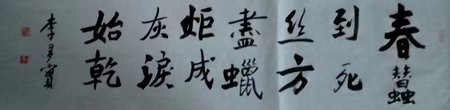 春蠶
到死
丝方
盡蠟
炬成
灰淚
始乾
李